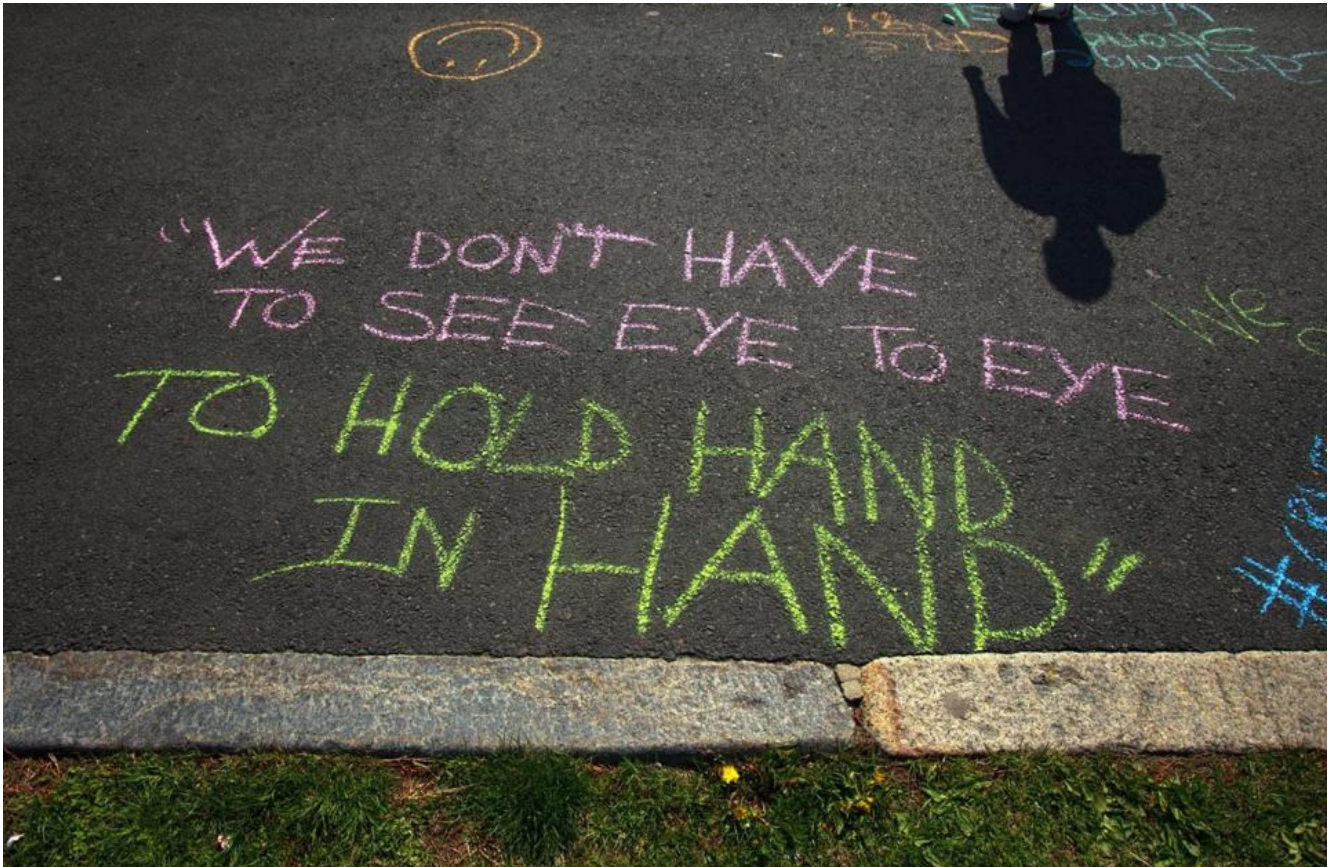 "WE DON'T HAVE
TO SEE EYE TO EYE
TO HOLD HAND
IN HAND"
We